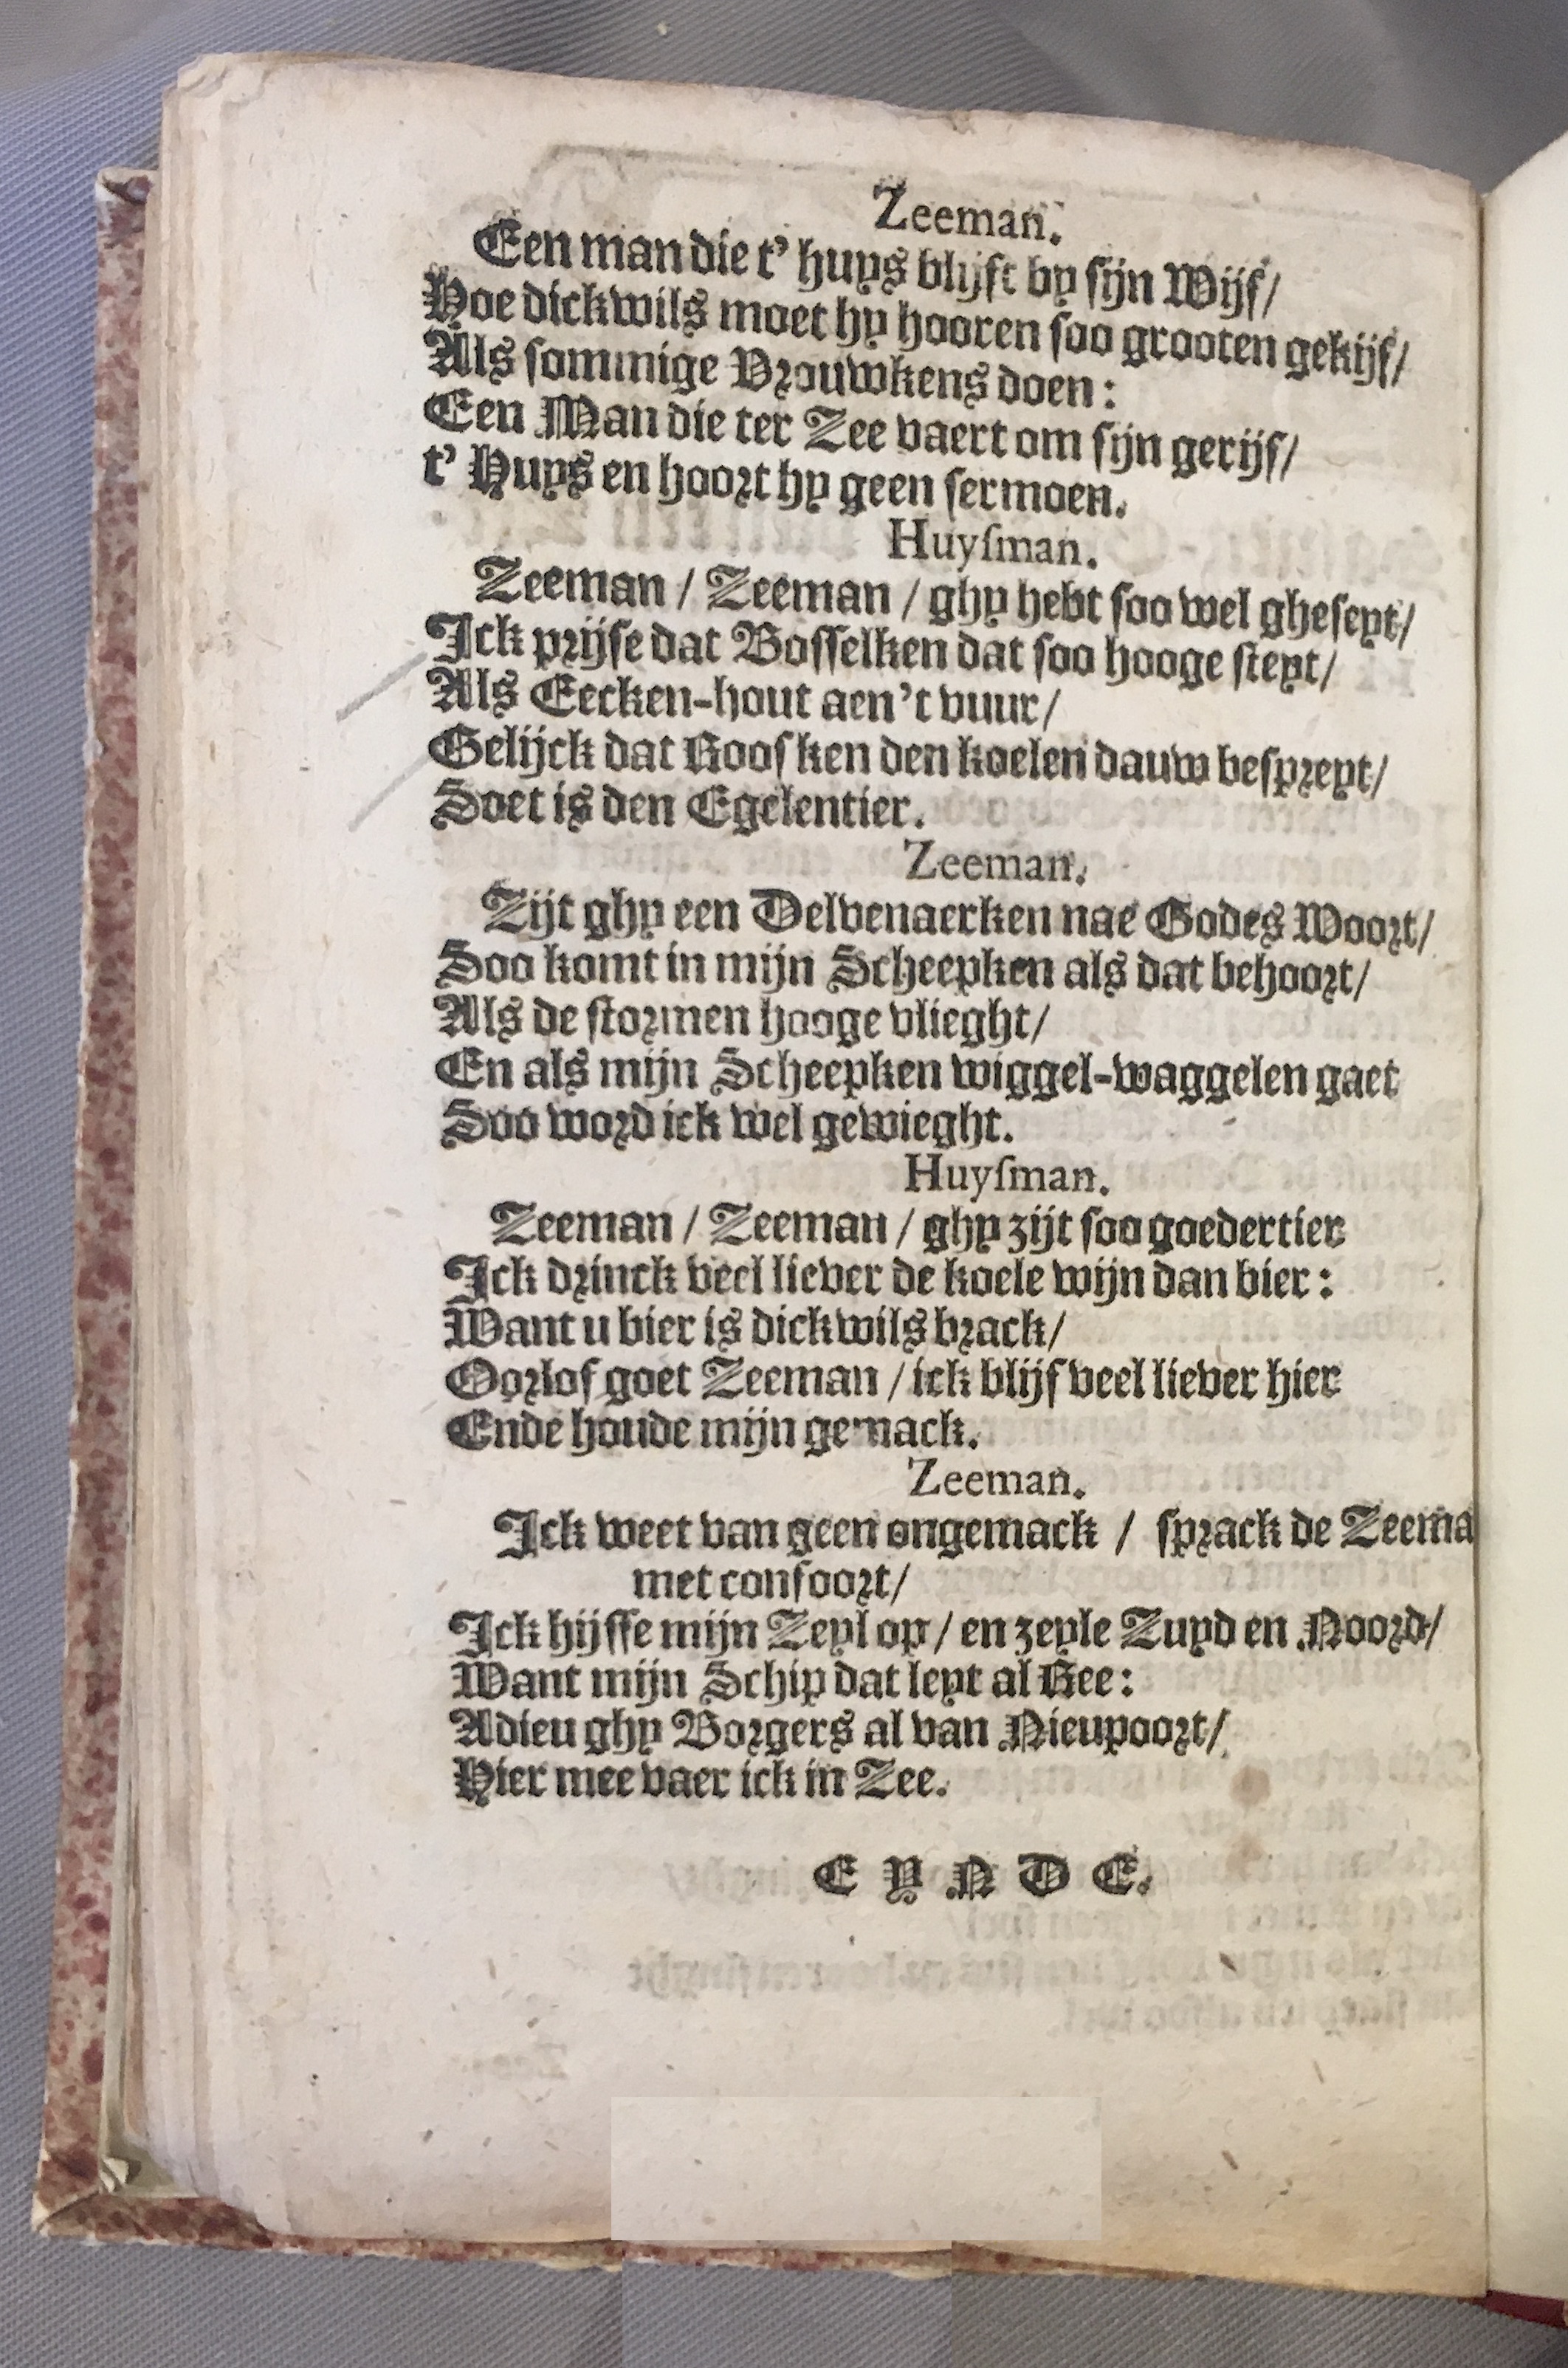 Zeeman.
Een man die t' huys blijft by sijn Wijf/
Hoe dickwils moet hy hooren soo grooten gekijf/
Als sommige Vrouwkens doen:
Een Man die ter Zee vaert om sijn gerijf/
t' Huys en hoort hy geen sermoen.
Huysman.
Zeeman / Zeeman / ghy hebt soo wel gheseyt/
Ick prijse dat Bosselken dat soo hooge steyt/
Als Eecken-hout aen't vuur/
Gelijck dat Roosken den koelen dauw bespreyt/
Soet is den Egelentier.
Zeeman.
Zijt ghy een Delvenaerken nae Godes Woort/
Soo komt in mijn Scheepken als dat behoort/
Als de stormen hooge vlieght/
En als mijn Scheepken wiggel-waggelen gaet
Soo word ick wel gewieght.
Huysman.
Zeeman / Zeeman / ghy zijt soo goedertier
Ick drinck veel liever de koele wijn dan bier:
Want u bier is dickwils brack/
Oorlof goet Zeeman / ick blijf veel liever hier
Ende houde mijn gemack.
Zeeman.
Ick weet van geen ongemack / sprack de Zeema
met confoort/
Ick hijsse mijn Zeyl op / en zeyle Zuyd en Noord/
Want mijn Schip dat leyt al Ree:
Adieu ghy Borgers al van Nieupoort/
Hier mee vaer ick in Zee.
EYNDE.